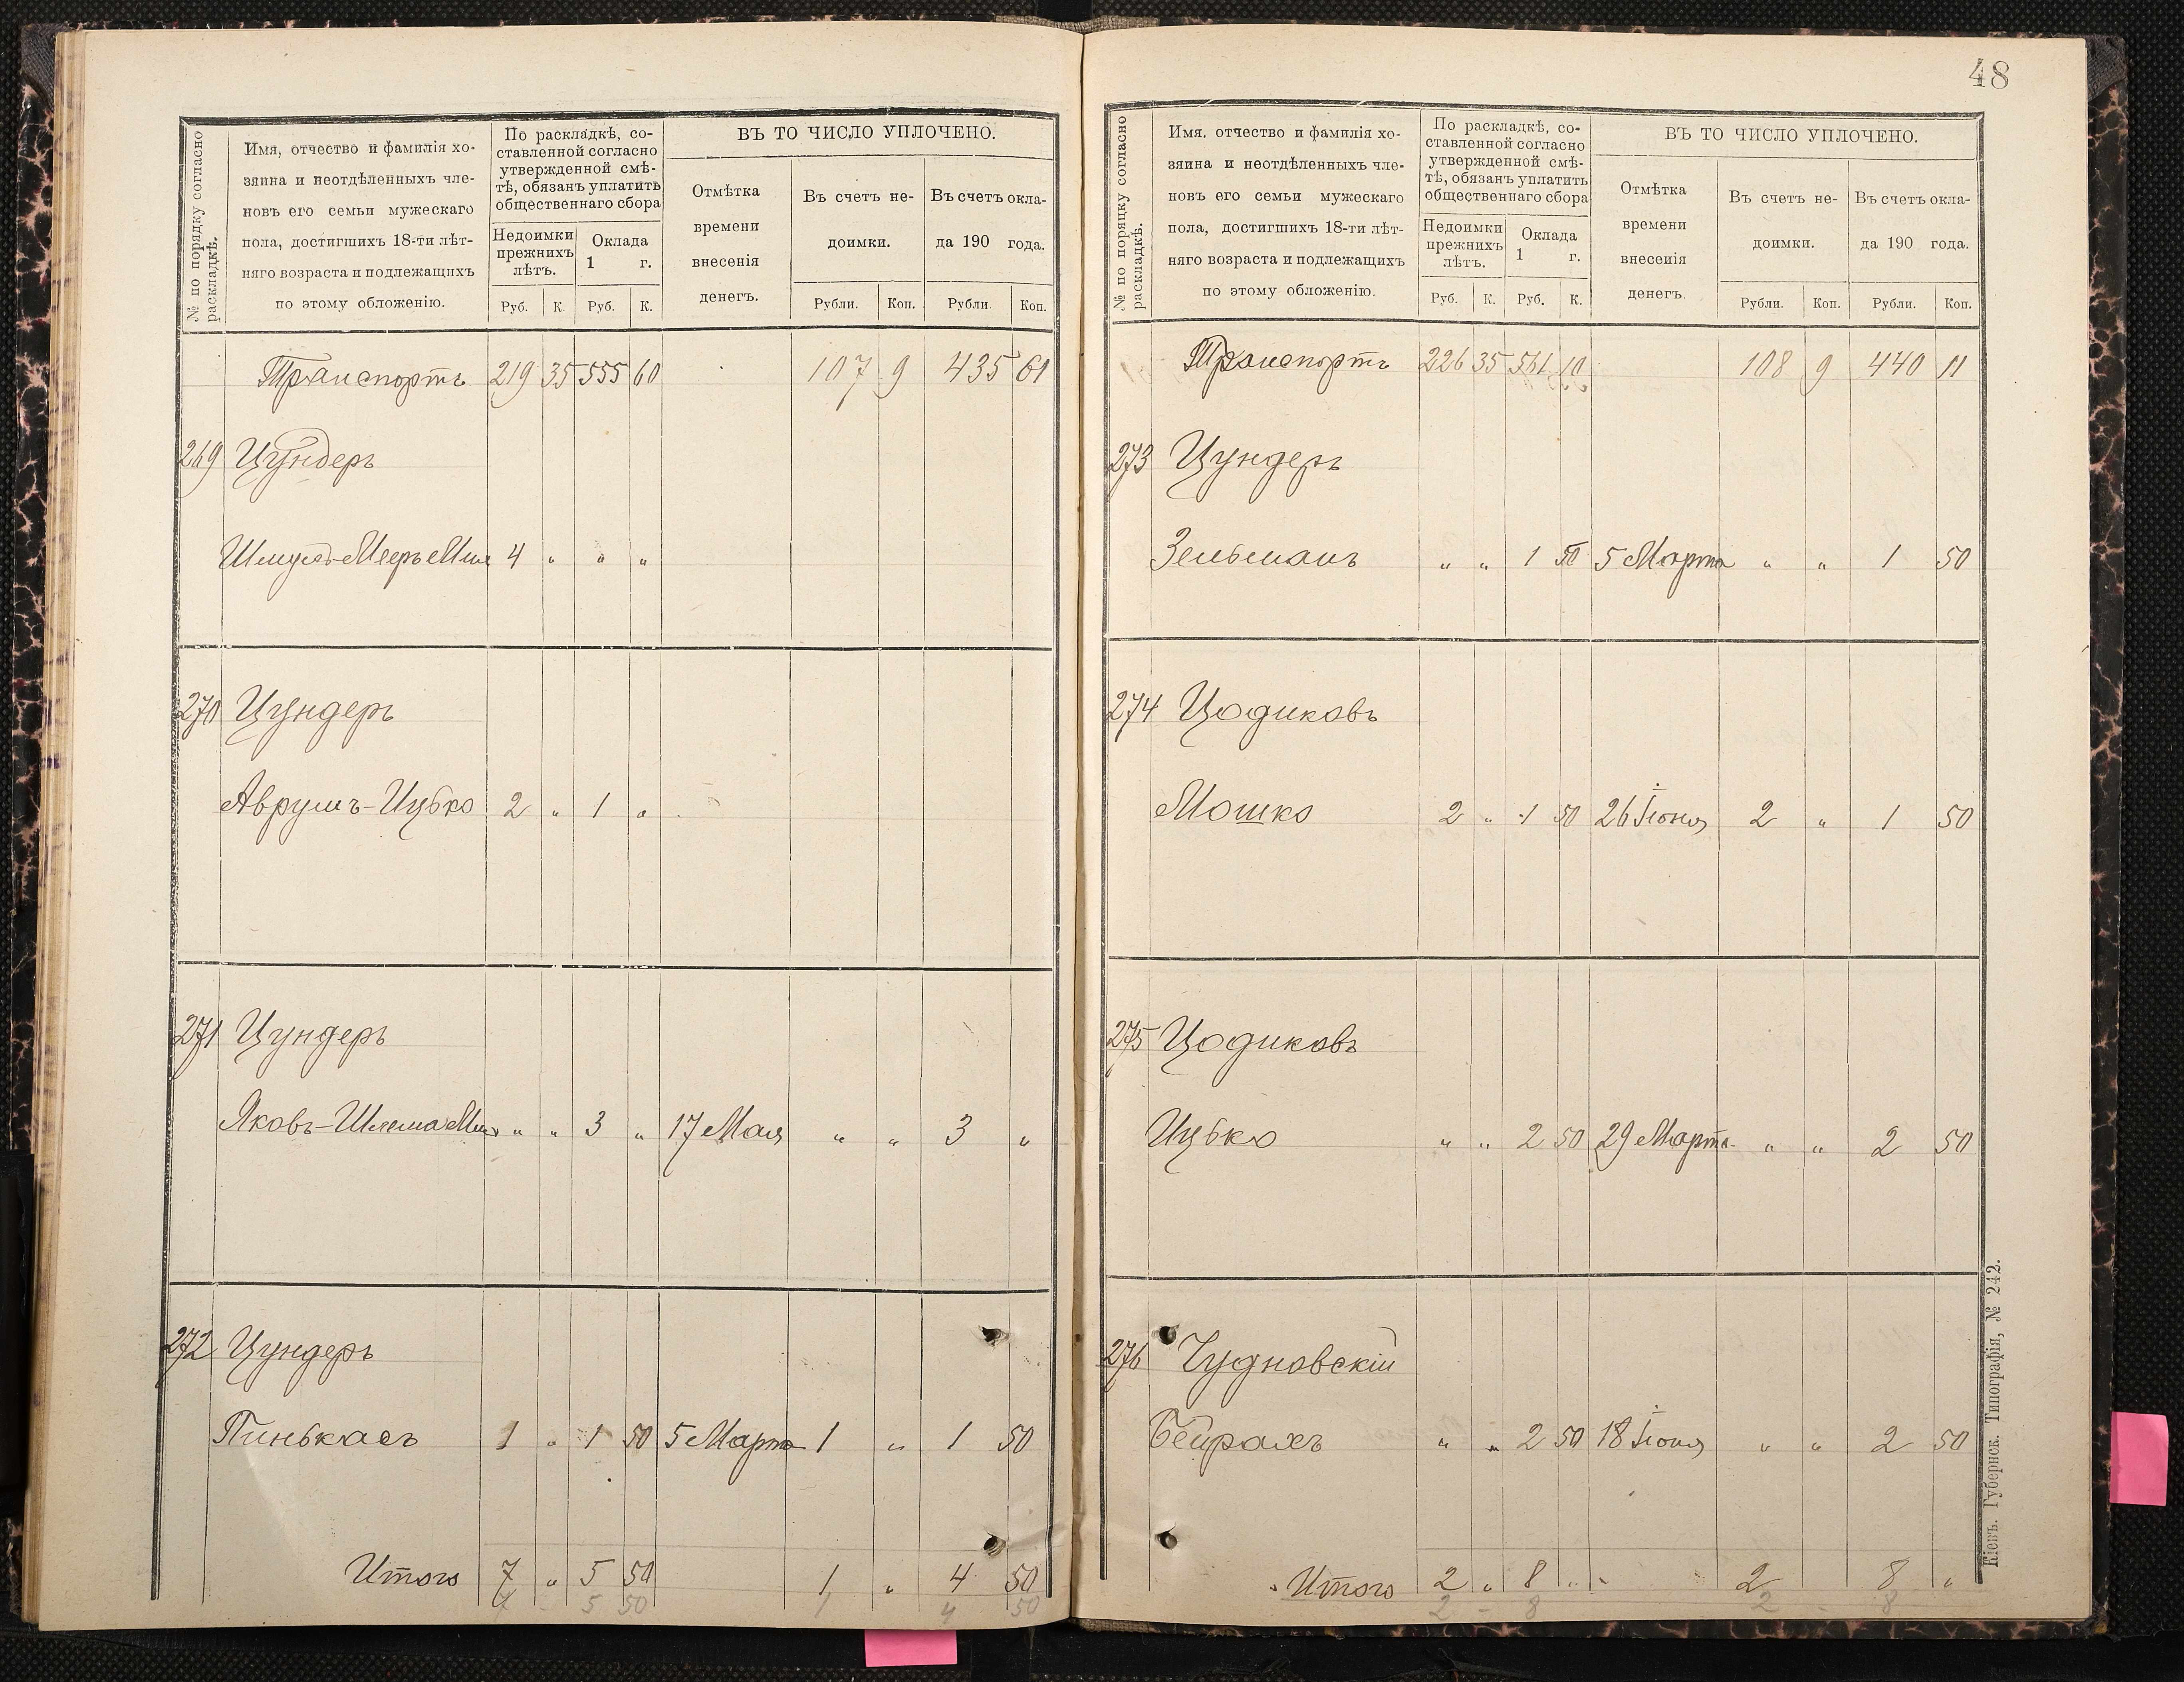 № по порядку согласно
раскладкѣ.
Имя, отчество и фамилія хо-
зяина и неотдѣленныхъ чле-
новъ его семьи мужескаго
пола, достигшихъ 18-ти лѣт-
няго возраста и подлежащихъ
по этому обложенію.
По раскладкѣ, со-
ставленной согласно
утвержденной смѣ-
тѣ, обязанъ уплатить
общественнаго сбора
Недоимки
прежнихъ
лѣтъ.
Оклада
1 г.
ВЪ ТО ЧИСЛО УПЛОЧЕНО.
Отмѣтка
времени
внесенія
денегъ.
Въ счетъ не-
доимки.
Въ счетъ окла-
да 190 года.
Руб. К. Руб. К. Рубли. Коп. Рубли. Коп.
Транспортъ 219 35 555 60 107 9 435 61
269 Цундеръ
Шмуль-Мееръ 4 " " "
270 Цундеръ
Аврумъ-Ицько 2 " 1 "
271 Цундеръ
Яковъ-Шлема " " 3 " 17 Мая " " 3 "
272 Цундеръ
Пинькасъ 1 " 1 50 5 Марта 1 " 1 50
Итого 7 " 5 50 1 " 4 50
7 - 5 50 1 4 50
48
№ по порядку согласно
раскладкѣ.
Имя, отчество и фамилія хо-
зяина и неотдѣленныхъ чле-
новъ его семьи мужескаго
пола, достигшихъ 18-ти лѣт-
няго возраста и подлежащихъ
по этому обложенію.
По раскладкѣ, со-
ставленной согласно
утвержденной смѣ-
тѣ, обязанъ уплатить
общественнаго сбора
Недоимки
прежнихъ
лѣтъ.
Оклада
1 г.
ВЪ ТО ЧИСЛО УПЛОЧЕНО.
Отмѣтка
времени
внесенія
денегъ.
Въ счетъ не-
доимки.
Въ счетъ окла-
да 190 года.
Руб. К. Руб. К. Рубли. Коп. Рубли. Коп.
Транспортъ 226 35 561 10 108 9 440 11
273 Цундеръ
Зельманъ " " 1 50 5 Марта " " 1 50
274 Цодиковъ
Мошко 2 " 1 50 26 Іюня 2 " 1 50
275 Цодиковъ
Ицько " " 2 50 29 Марта " " 2 50
276 Чудновскій
Бейрахъ " " 2 50 18 Іюня " " 2 50
Итого 2 " 8 " 2 8 "
2 - 8 2 - 8
Кіевъ. Губернск. Типографія, № 242.